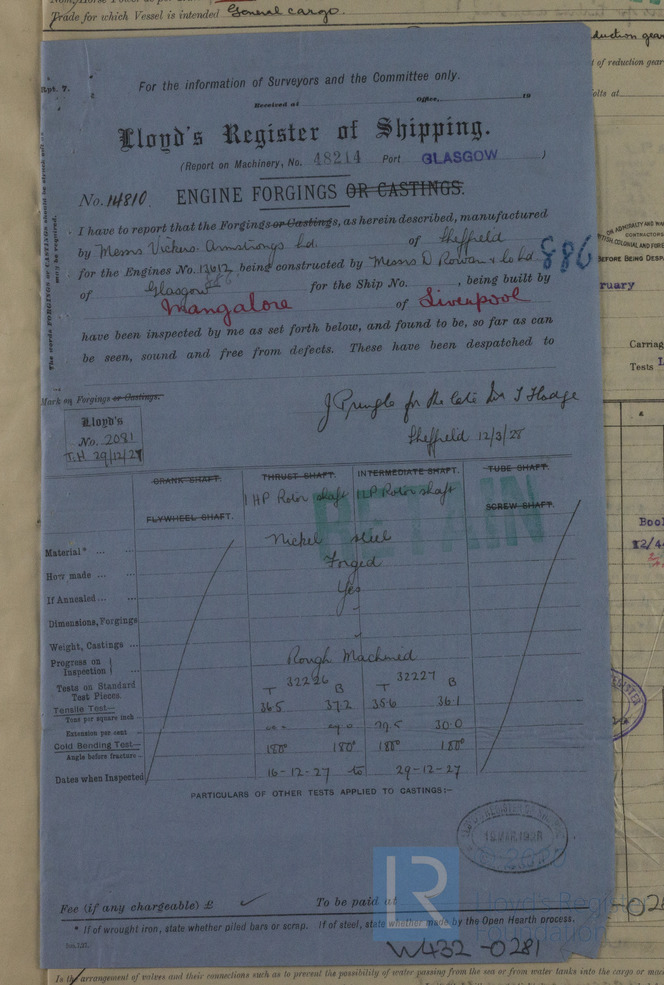 Trade for which Vessel is intended General cargo.
duction gear
t of reduction gear
olts at
Rpt. 7.
For the information of Surveyors and the Committee only.
Received at Office, 19
Lloyd's Register of Shipping.
(Report on Machinery, No. 48214 Port GLASGOW )
No. 14810. ENGINE FORGINGS OR CASTINGS.
The words FORGINGS or CASTINGS should be struck out as
may be required.
I have to report that the Forgings or Castings, as herein described, manufactured
by Messrs Vickers Armstrongs Ltd. of Sheffield
for the Engines No. being constructed by Messrs D Rowan & Co Ltd 886
of Glasgow for the Ship No. , being built by
Mangalore of Liverpool
have been inspected by me as set forth below, and found to be, so far as can
be seen, sound and free from defects. These have been despatched to
ON ADMIRALTY AND WA
CONTRACTORS
BRITISH, COLONIAL AND FORE
BEFORE BEING DESPA
ruary
Carriag
Tests
Mark on Forgings or Castings.
Lloyd's
No. 2081
T.H 29/12/27
J Pringle for the late Mr T Hodge
Sheffield 12/3/28
CRANK SHAFT. THRUST SHAFT. INTERMEDIATE SHAFT. TUBE SHAFT.
1 HP Rotor shaft 1 LP Rotor shaft
FLYWHEEL SHAFT. SCREW SHAFT.
RETAIN
Boo
Material* ... Nickel steel
How made ... Forged
If Annealed ... Yes
Dimensions, Forgings
Weight, Castings ...
Progress on Inspection Rough Machined
Tests on Standard Test Pieces. T 32226 B T 32227 B
Tensile Test—
Tons per square inch 36.5 37.2 35.6 36.1
Extension per cent 29.5 30.0
Cold Bending Test—
Angle before fracture 180° 180° 180° 180°
Dates when Inspected 16-12-27 to 29-12-27
PARTICULARS OF OTHER TESTS APPLIED TO CASTINGS:—
MAR 1928
Fee (if any chargeable) £ ✓ To be paid at
LR Lloyd's Register
Foundation
* If of wrought iron, state whether piled bars or scrap. If of steel, state whether made by the Open Hearth process.
W432-0281
Is the arrangement of valves and their connections such as to prevent the possibility of water passing from the sea or from water tanks into the cargo or mac